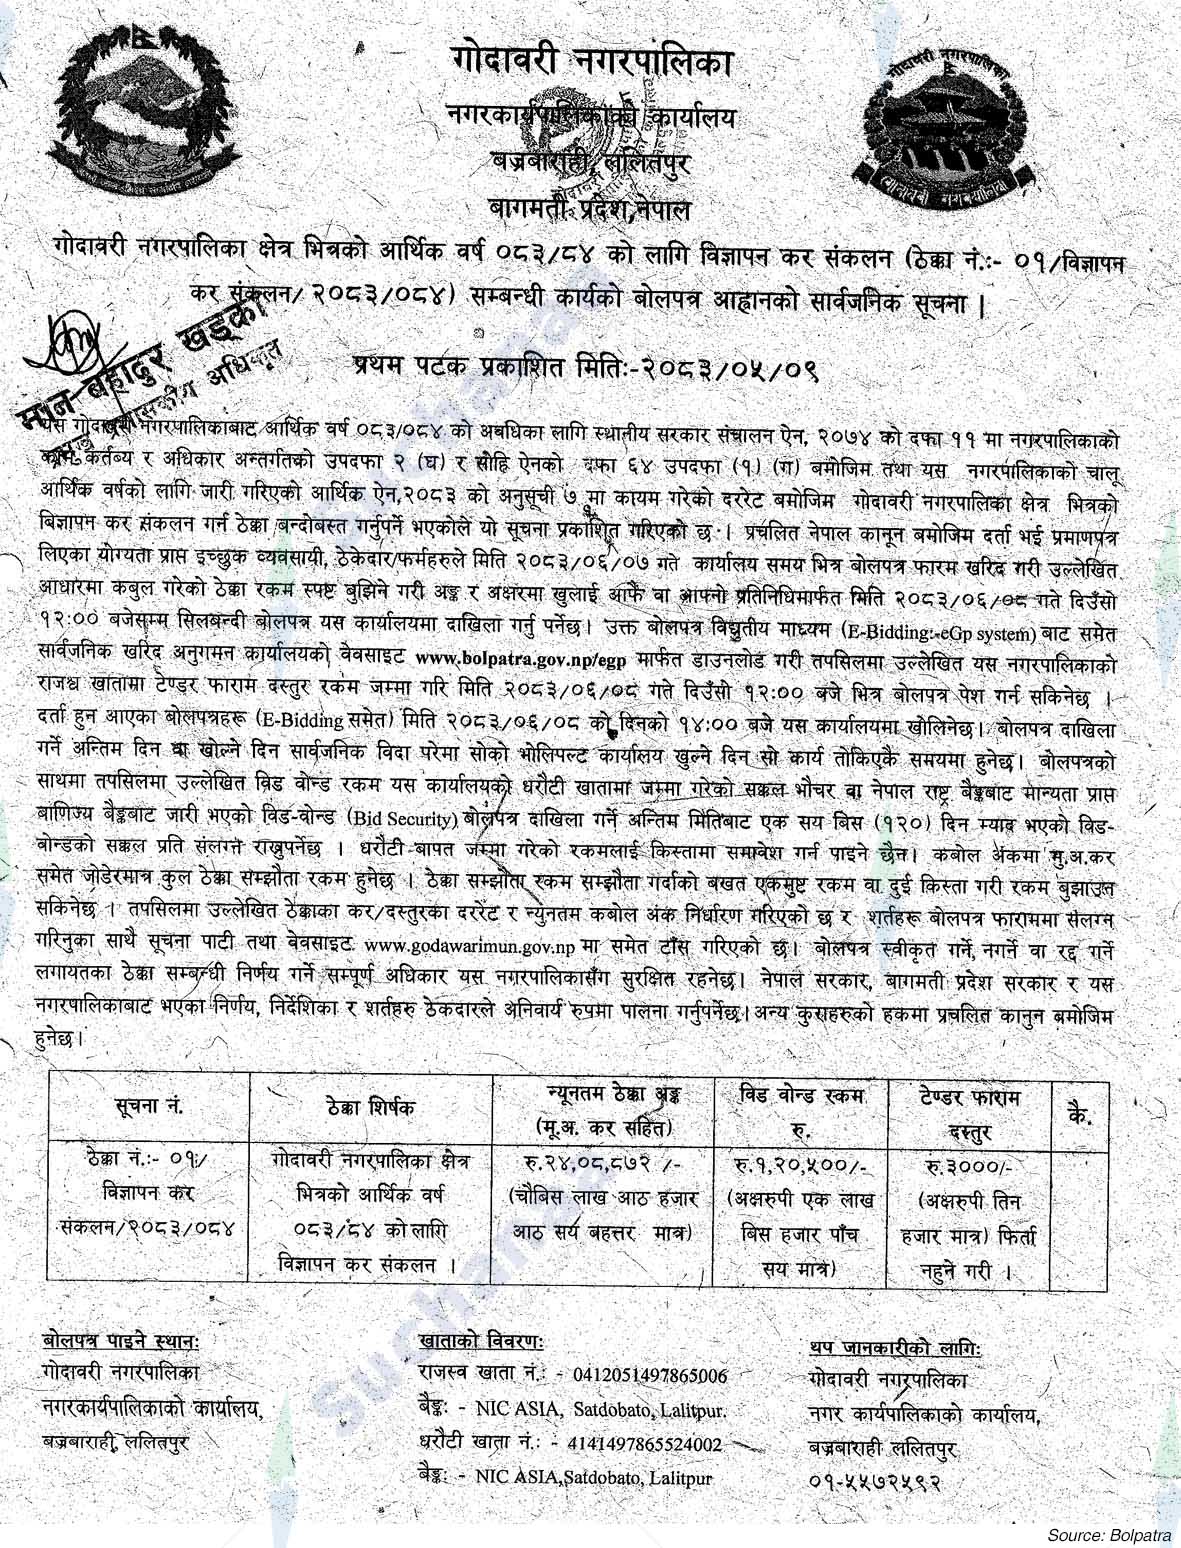 गोदावरी नगरपालिका
नगरकार्यपालिकाको कार्यालय
बज्रबाराही, ललितपुर
बागमती प्रदेश,नेपाल
गोदावरी नगरपालिका
गोदावरी नगरपालिका क्षेत्र भित्रको आर्थिक वर्ष ०८३/८४ को लागि विज्ञापन कर संकलन (ठेक्का नं.:- ०१/विज्ञापन
कर संकलन/ २०८३/०८४) सम्बन्धी कार्यको बोलपत्र आह्वानको सार्वजनिक सूचना |
मान बहादुर खड्का
प्रशासकीय अधिकृत
प्रथम पटक प्रकाशित मिति:-२०८३/०५/०९
यस गोदावरी नगरपालिकाबाट आर्थिक वर्ष ०८३/०८४ को अवधिका लागि स्थानीय सरकार संचालन ऐन, २०७४ को दफा ११ मा नगरपालिकाको
काम, कर्तब्य र अधिकार अन्तर्गतको उपदफा २ (घ) र सोहि ऐनको दफा ६४ उपदफा (१) (ग) बमोजिम तथा यस नगरपालिकाको चालू
आर्थिक वर्षको लागि जारी गरिएको आर्थिक ऐन,२०८३ को अनुसूची ७ मा कायम गरेको दररेट बमोजिम गोदावरी नगरपालिका क्षेत्र भित्रको
बिज्ञापन कर संकलन गर्न ठेक्का बन्दोबस्त गर्नुपर्ने भएकोले यो सूचना प्रकाशित गरिएको छ । प्रचलित नेपाल कानून बमोजिम दर्ता भई प्रमाणपत्र
लिएका योग्यता प्राप्त इच्छुक व्यवसायी, ठेकेदार/फर्महरुले मिति २०८३/०६/०७ गते कार्यालय समय भित्र बोलपत्र फारम खरिद गरी उल्लेखित
आधारमा कबुल गरेको ठेक्का रकम स्पष्ट बुझिने गरी अङ्क र अक्षरमा खुलाई आफै वा आफ्नो प्रतिनिधिमार्फत मिति २०८३/०६/०८ गते दिउँसो
१२:०० बजेसम्म सिलबन्दी बोलपत्र यस कार्यालयमा दाखिला गर्नु पर्नेछ। उक्त बोलपत्र विद्युतीय माध्यम (E-Bidding:-eGp system) बाट समेत
सार्वजनिक खरिद अनुगमन कार्यालयको वेवसाइट www.bolpatra.gov.np/egp मार्फत डाउनलोड गरी तपसिलमा उल्लेखित यस नगरपालिकाको
राजश्व खातामा टेण्डर फाराम दस्तुर रकम जम्मा गरि मिति २०८३/०६/०८ गते दिउँसी १२:०० बजे भित्र बोलपत्र पेश गर्न सकिनेछ ।
दर्ता हुन आएका बोलपत्रहरू (E-Bidding समेत) मिति २०८३/०६/०८ को दिनको १४:०० बजे यस कार्यालयमा खोलिनेछ। बोलपत्र दाखिला
गर्ने अन्तिम दिन वा खोल्ने दिन सार्वजनिक विदा परेमा सोको भोलिपल्ट कार्यालय खुल्ने दिन सो कार्य तोकिएकै समयमा हुनेछ। बोलपत्रको
साथमा तपसिलमा उल्लेखित विड वोन्ड रकम यस कार्यालयको धरौटी खातामा जम्मा गरेको सक्कल भौचर वा नेपाल राष्ट्र बैङ्कबाट मान्यता प्राप्त
बाणिज्य बैङ्कबाट जारी भएको विड-वोन्ड (Bid Security) बोलपत्र दाखिला गर्ने अन्तिम मितिबाट एक सय बिस (१२०) दिन म्याद भएको विड-
बोन्डको सक्कल प्रति संलग्न राख्नुपर्नेछ । धरौटी बापत जम्मा गरेको रकमलाई किस्तामा समावेश गर्न पाइने छैन। कबोल अंकमा मु.अ.कर
समेत जोडेरमात्र कुल ठेक्का सम्झौता रकम हुनेछ । ठेक्का सम्झौता रकम सम्झौता गर्दाको बखत एकमुष्ट रकम वा दुई किस्ता गरी रकम बुझाउन
सकिनेछ । तपसिलमा उल्लेखित ठेक्काका कर/दस्तुरका दररेट र न्युनतम कबोल अंक निर्धारण गरिएको छ र शर्तहरू बोलपत्र फाराममा संलग्न
गरिनुका साथै सूचना पाटी तथा बेवसाइट www.godawarimun.gov.np मा समेत टाँस गरिएको छ। बोलपत्र स्वीकृत गर्ने, नगर्ने वा रद्द गर्ने
लगायतका ठेक्का सम्बन्धी निर्णय गर्ने सम्पूर्ण अधिकार यस नगरपालिकासँग सुरक्षित रहनेछ। नेपाल सरकार, बागमती प्रदेश सरकार र यस
नगरपालिकाबाट भएका निर्णय, निर्देशिका र शर्तहरु ठेकदारले अनिवार्य रुपमा पालना गर्नुपर्नेछ। अन्य कुराहरुको हकमा प्रचलित कानुन बमोजिम
हुनेछ।
सूचना नं. ठेक्का शिर्षक न्यूनतम ठेक्का अङ्क (मू.अ. कर सहित) विड वोन्ड रकम रु. टेण्डर फाराम दस्तुर कै.
ठेक्का नं.:- ०१/ गोदावरी नगरपालिका क्षेत्र रु.२४,०८,८७२ /- रु.१,२०,५००/- रु.३०००/-
विज्ञापन कर भित्रको आर्थिक वर्ष (चौबिस लाख आठ हजार (अक्षरुपी एक लाख (अक्षरुपी तिन
संकलन/२०८३/०८४ ०८३/८४ को लागि आठ सय बहत्तर मात्र) बिस हजार पाँच हजार मात्र) फिर्ता
विज्ञापन कर संकलन । सय मात्र) नहुने गरी ।
बोलपत्र पाइने स्थान:
गोदावरी नगरपालिका
नगरकार्यपालिकाको कार्यालय,
बज्रबाराही, ललितपुर
खाताको विवरण:
राजस्व खाता नं.: - 0412051497865006
बैङ्क: - NIC ASIA, Satdobato, Lalitpur.
धरौटी खाता नं.: - 4141497865524002
बैङ्क: - NIC ASIA,Satdobato, Lalitpur
थप जानकारीको लागि:
गोदावरी नगरपालिका
नगर कार्यपालिकाको कार्यालय,
बज्रबाराही ललितपुर
०१-५५७२५९२
Source: Bolpatra